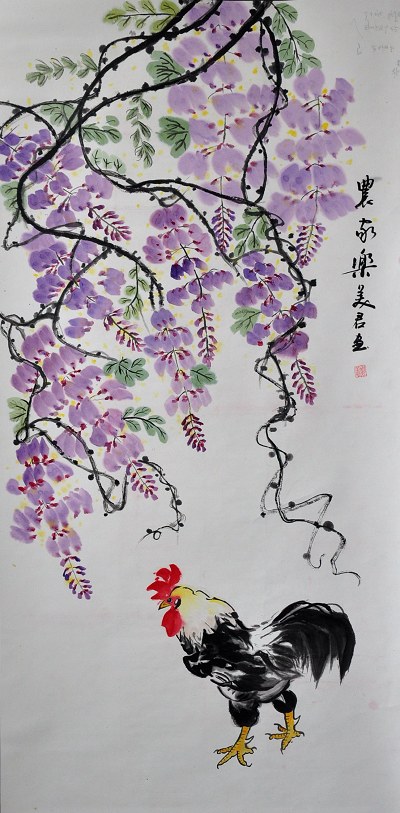 農家樂美君画